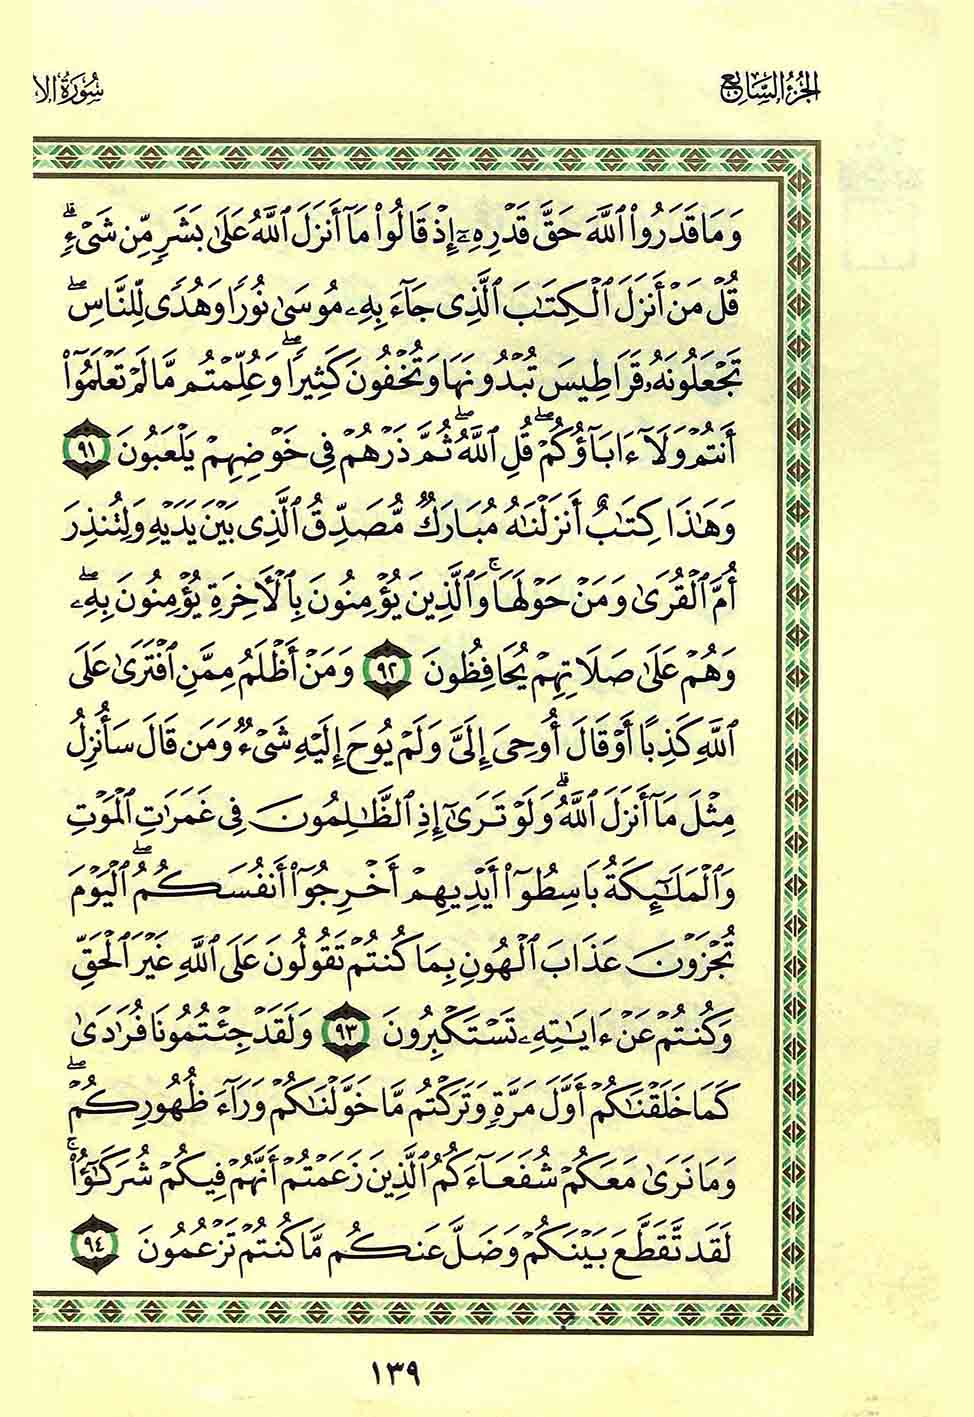 الجزء السابع
سورة الأ
وَمَا قَدَرُوا۟ ٱللَّهَ حَقَّ قَدْرِهِۦٓ إِذْ قَالُوا۟ مَآ أَنزَلَ ٱللَّهُ عَلَىٰ بَشَرٍ مِّن شَىْءٍ ۗ
قُلْ مَنْ أَنزَلَ ٱلْكِتَٰبَ ٱلَّذِى جَآءَ بِهِۦ مُوسَىٰ نُورًا وَهُدًى لِّلنَّاسِ ۖ
تَجْعَلُونَهُۥ قَرَاطِيسَ تُبْدُونَهَا وَتُخْفُونَ كَثِيرًا ۖ وَعُلِّمْتُم مَّا لَمْ تَعْلَمُوٓا۟
أَنتُمْ وَلَآ ءَابَآؤُكُمْ ۖ قُلِ ٱللَّهُ ۖ ثُمَّ ذَرْهُمْ فِى خَوْضِهِمْ يَلْعَبُونَ ٩١
وَهَٰذَا كِتَٰبٌ أَنزَلْنَٰهُ مُبَارَكٌ مُّصَدِّقُ ٱلَّذِى بَيْنَ يَدَيْهِ وَلِتُنذِرَ
أُمَّ ٱلْقُرَىٰ وَمَنْ حَوْلَهَا ۚ وَٱلَّذِينَ يُؤْمِنُونَ بِٱلْأَخِرَةِ يُؤْمِنُونَ بِهِۦ ۖ
وَهُمْ عَلَىٰ صَلَاتِهِمْ يُحَافِظُونَ ٩٢ وَمَنْ أَظْلَمُ مِمَّنِ ٱفْتَرَىٰ عَلَى
ٱللَّهِ كَذِبًا أَوْ قَالَ أُوحِىَ إِلَىَّ وَلَمْ يُوحَ إِلَيْهِ شَىْءٌ وَمَن قَالَ سَأُنزِلُ
مِثْلَ مَآ أَنزَلَ ٱللَّهُ ۗ وَلَوْ تَرَىٰٓ إِذِ ٱلظَّٰلِمُونَ فِى غَمَرَٰتِ ٱلْمَوْتِ
وَٱلْمَلَٰٓئِكَةُ بَاسِطُوٓا۟ أَيْدِيهِمْ أَخْرِجُوٓا۟ أَنفُسَكُمُ ۖ ٱلْيَوْمَ
تُجْزَوْنَ عَذَابَ ٱلْهُونِ بِمَا كُنتُمْ تَقُولُونَ عَلَى ٱللَّهِ غَيْرَ ٱلْحَقِّ
وَكُنتُمْ عَنْ ءَايَٰتِهِۦ تَسْتَكْبِرُونَ ٩٣ وَلَقَدْ جِئْتُمُونَا فُرَٰدَىٰ
كَمَا خَلَقْنَٰكُمْ أَوَّلَ مَرَّةٍ وَتَرَكْتُم مَّا خَوَّلْنَٰكُمْ وَرَآءَ ظُهُورِكُمْ ۖ
وَمَا نَرَىٰ مَعَكُمْ شُفَعَآءَكُمُ ٱلَّذِينَ زَعَمْتُمْ أَنَّهُمْ فِيكُمْ شُرَكَٰٓؤُا۟ ۚ
لَقَد تَّقَطَّعَ بَيْنَكُمْ وَضَلَّ عَنكُم مَّا كُنتُمْ تَزْعُمُونَ ٩٤
١٣٩